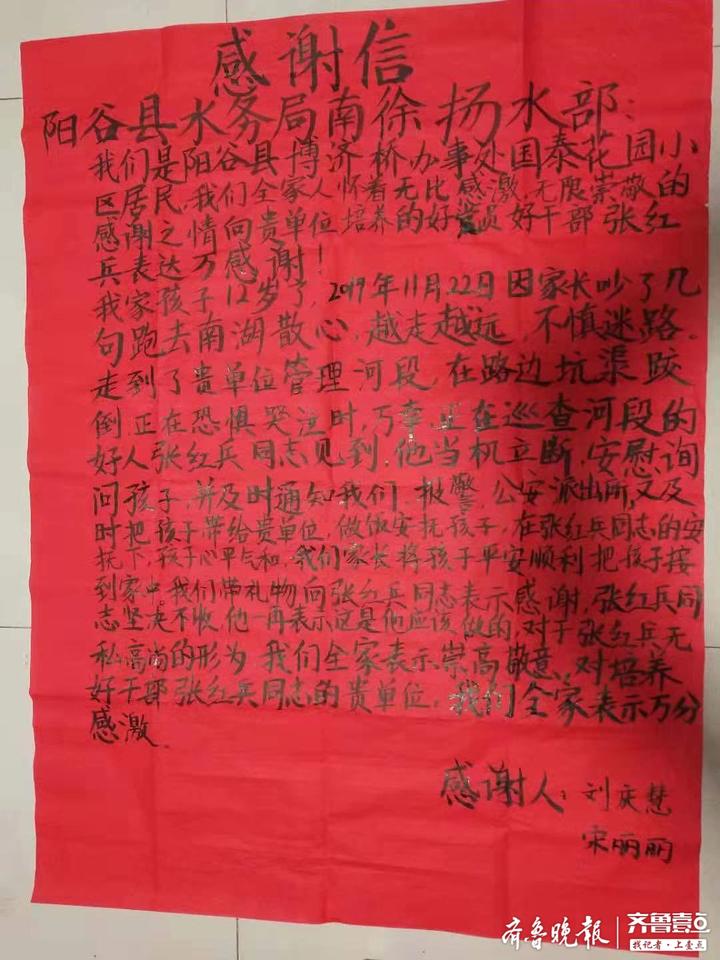 感谢信
阳谷县水务局南徐扬水部:
我们是阳谷县博济桥办事处国泰花园小
区居民,我们全家人怀着无比感激无限崇敬的
感谢之情向贵单位培养的好党员好干部张红
兵表达万感谢!
我家孩子12岁了,2019年11月22日因家长吵了几
句跑去南湖散心,越走越远,不慎迷路.
走到了贵单位管理河段,在路边坑渠跤
倒,正在恐惧哭泣时,万幸,正在巡查河段的
好人张红兵同志见到,他当机立断,安慰询
问孩子,并及时通知我们报警,公安派出所,又及
时把孩子带给贵单位,做饭安抚孩子,在张红兵同志的安
抚下,孩子心平气和,我们家长将孩子平安顺利把孩子接
到家中。我们带礼物向张红兵同志表示感谢,张红兵同
志坚决不收他一再表示这是他应该做的,对于张红兵无
私高尚的形为我们全家表示崇高敬意,对培养
好干部张红兵同志的贵单位,我们全家表示万分
感激.
感谢人:刘庆慧
宋丽丽
齐鲁晚报 齐鲁壹点
找记者·上壹点